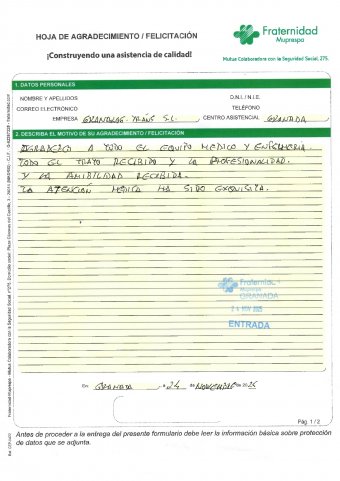 HOJA DE AGRADECIMIENTO / FELICITACIÓN
¡Construyendo una asistencia de calidad!
Fraternidad
Muprespa
Mutua Colaboradora con la Seguridad Social, 275.
1. DATOS PERSONALES
NOMBRE Y APELLIDOS
D.N.I. / N.I.E.
CORREO ELECTRÓNICO
TELÉFONO
EMPRESA
TRANS S.L.
CENTRO ASISTENCIAL GRANADA
2. DESCRIBA EL MOTIVO DE SU AGRADECIMIENTO / FELICITACIÓN
AGRADEZCO A TODO EL EQUIPO MEDICO Y ENFERMERIA.
TODO EL TRATO RECIBIDO Y LA PROFESIONALIDAD.
Y LA AMIBILIDAD RECIBIDA.
LA ATENCIÓN MEDICA HA SIDO EXQUISITA.
Fraternidad
Muprespa
GRANADA
24 NOV 2025
ENTRADA
En GRANADA a 24 de NOVIEMBRE de 2025
Pág. 1 / 2
Antes de proceder a la entrega del presente formulario debe leer la información básica sobre protección
de datos que se adjunta.